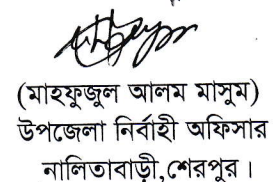 (মাহফুজুল আলম মাসুম)
উপজেলা নির্বাহী অফিসার
নালিতাবাড়ী,শেরপুর।